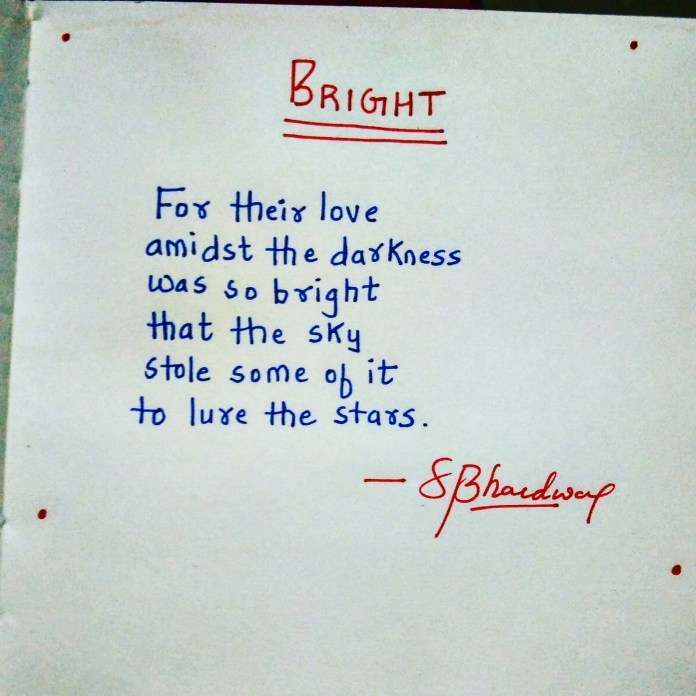 BRIGHT
For their love
amidst the darkness
was so bright
that the sky
stole some of it
to lure the stars.
— SBhardwaj